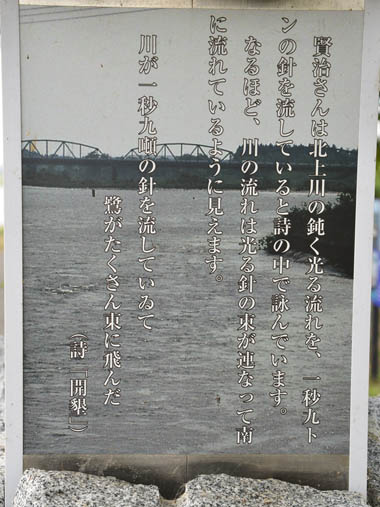 賢治さんは北上川の鈍く光る流れを、一秒九ト
ンの針を流していると詩の中で詠んでいます。
なるほど、川の流れは光る針の束が連なって南
に流れているように見えます。
川が一秒九噸の針を流してゐて
鷺がたくさん東に飛んだ
(詩「開墾」)